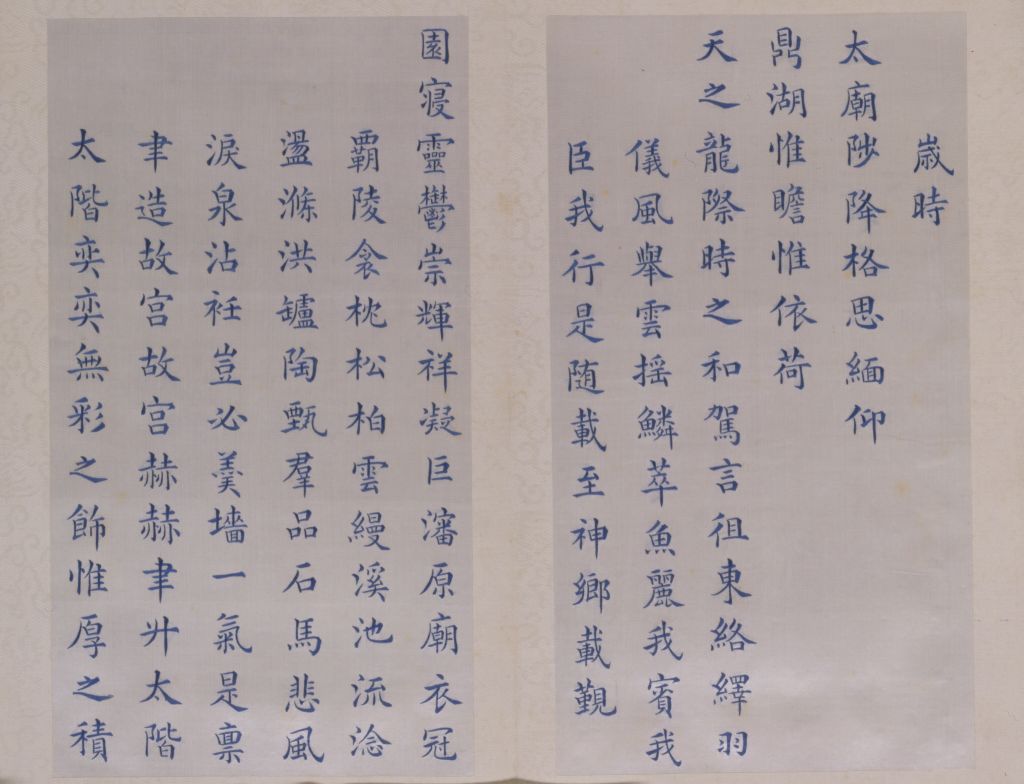 歲時
太廟陟降格思緬仰
鼎湖惟瞻惟依荷
天之龍際時之和駕言徂東絡繹羽
儀風舉雲搖鱗萃魚麗我賓我
臣我行是随載至神鄉載覲
園寢靈鬱崇輝祥凝巨瀋原廟衣冠
霸陵衾枕松柏雲縵溪池流淰
盪滌洪鑪陶甄羣品石馬悲風
淚泉沾衽豈必羹墻一氣是禀
聿造故宫故宫赫赫聿升太階
太階奕奕無彩之飾惟厚之積